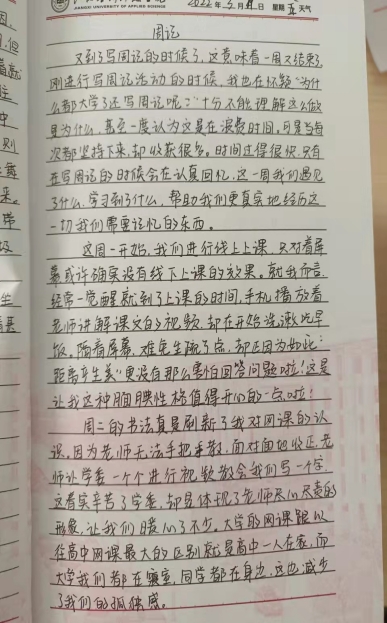 JIANGXI UNIVERSITY OF APPLIED SCIENCE
2022年3月 日 星期五 天气
周记
又到了写周记的时候了，这意味着一周又结束了，
刚进行写周记活动的时候，我也在怀疑“为什
么都大学了还写周记呢？”十分不能理解这么做
是为什么，甚至一度认为这是在浪费时间。可是当每
次都坚持下来，却收获很多。时间过得很快，只有
在写周记的时候会在认真回忆，这一周我们遇见
了什么，学习到了什么，帮助我们更真实地经历这
一切我们需要记忆的东西。
这周一开始，我们进行线上上课，只对着屏
幕或许确实没有线下上课的效果。就我而言，
经常一觉醒就到了上课的时间，手机播放着
老师讲解课文的视频，却在开始洗漱吃早
饭。隔着屏幕，难免生疏了点，却正因为如此：
距离产生美“更没有那么害怕回答问题啦！这是
让我这种腼腆性格值得开心的一点啦！
周二的书法真是刷新了我对网课的认
识。因为老师无法手把手教，面对面地纠正，老
师让学委一个个进行视频教会我们写一个字，
这着实辛苦了学委，却是体现了老师尽心尽责的
形象，让我们暖心了不少。大学的网课跟以
往高中网课最大的区别就是高中一人在家，而
大学我们都在寝室，同学都在身边，这也减少
了我们的孤独感。